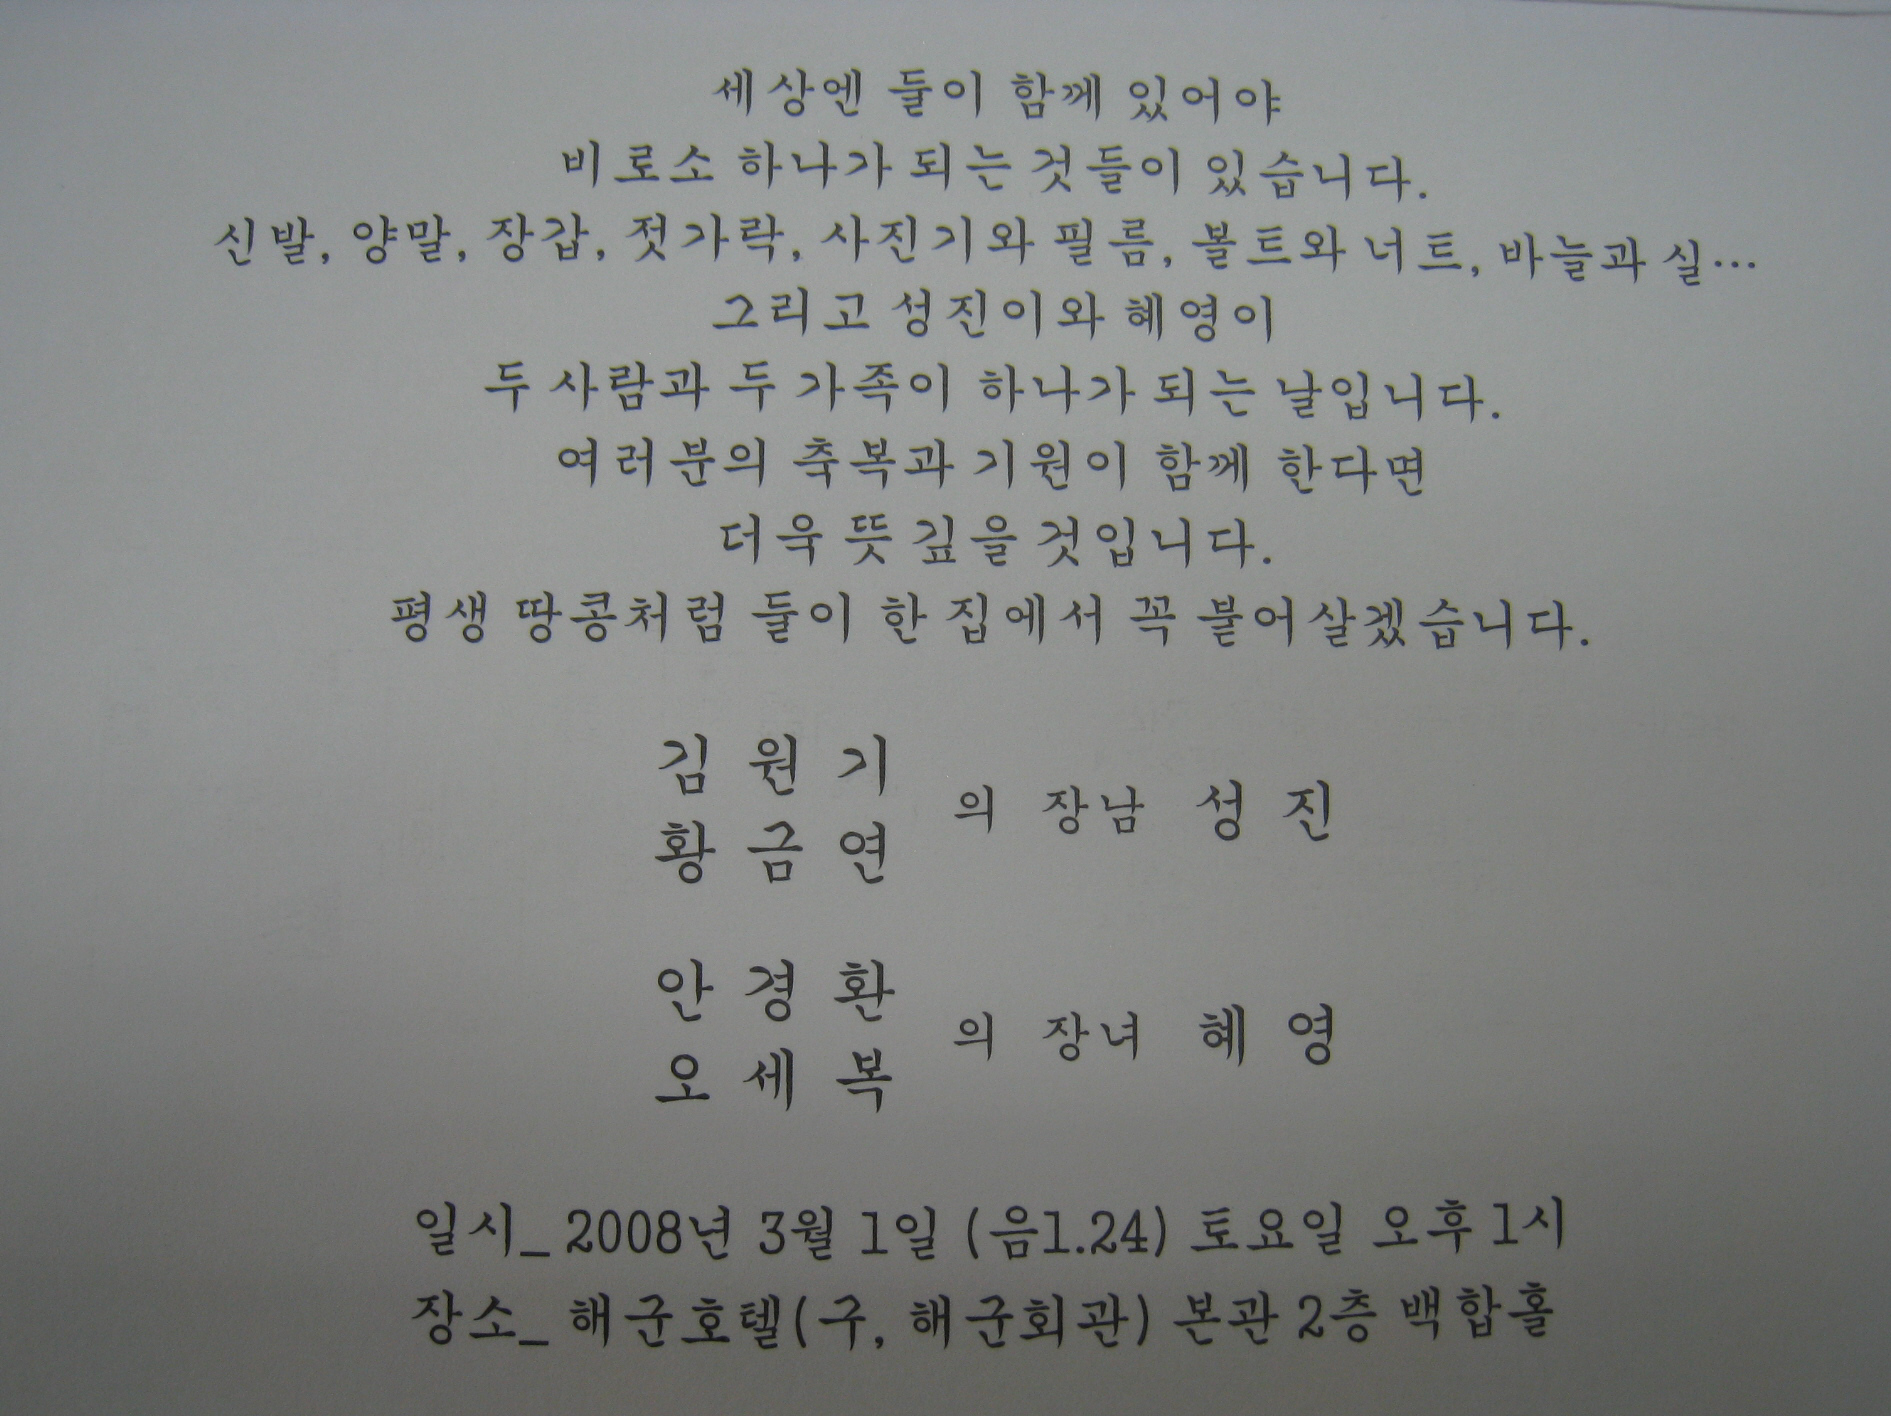 세상엔 둘이 함께 있어야
비로소 하나가 되는 것들이 있습니다.
신발, 양말, 장갑, 젓가락, 사진기와 필름, 볼트와 너트, 바늘과 실...
그리고 성진이와 혜영이
두 사람과 두 가족이 하나가 되는 날입니다.
여러분의 축복과 기원이 함께 한다면
더욱 뜻 깊을 것입니다.
평생 땅콩처럼 둘이 한 집에서 꼭 붙어살겠습니다.
김 원 기
황 금 연
의 장남 성 진
안 경 환
오 세 복
의 장녀 혜 영
일시_ 2008년 3월 1일 (음1.24) 토요일 오후 1시
장소_ 해군호텔(구, 해군회관) 본관 2층 백합홀